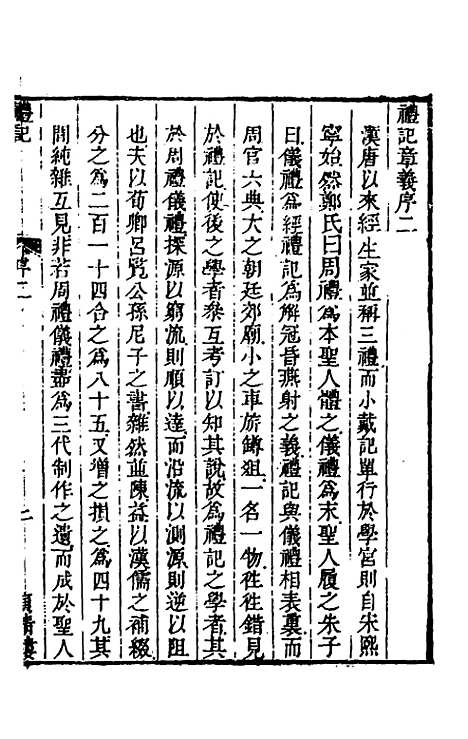 禮記章義序二
漢唐以來經生家並稱三禮而小戴記單行於學宮則自宋熙
寧始然鄭氏曰周禮爲本聖人體之儀禮爲末聖人履之朱子
曰儀禮爲經禮記爲解冠昏燕射之義禮記與儀禮相表裏而
周官六典大之朝廷郊廟小之車旂鐏俎一名一物徃徃錯見
於禮記使後之學者參互考訂以知其說故爲禮記之學者其
於周禮儀禮探源以窮流則順以達而沿流以測源則逆以阻
也夫以荀卿呂覽公孫尼子之書雜然並陳益以漢儒之補綴
分之爲二百一十四合之爲八十五又增之損之爲四十九其
間純雜互見非若周禮儀禮盡爲三代制作之遺而成於聖人
禮記
序二
二